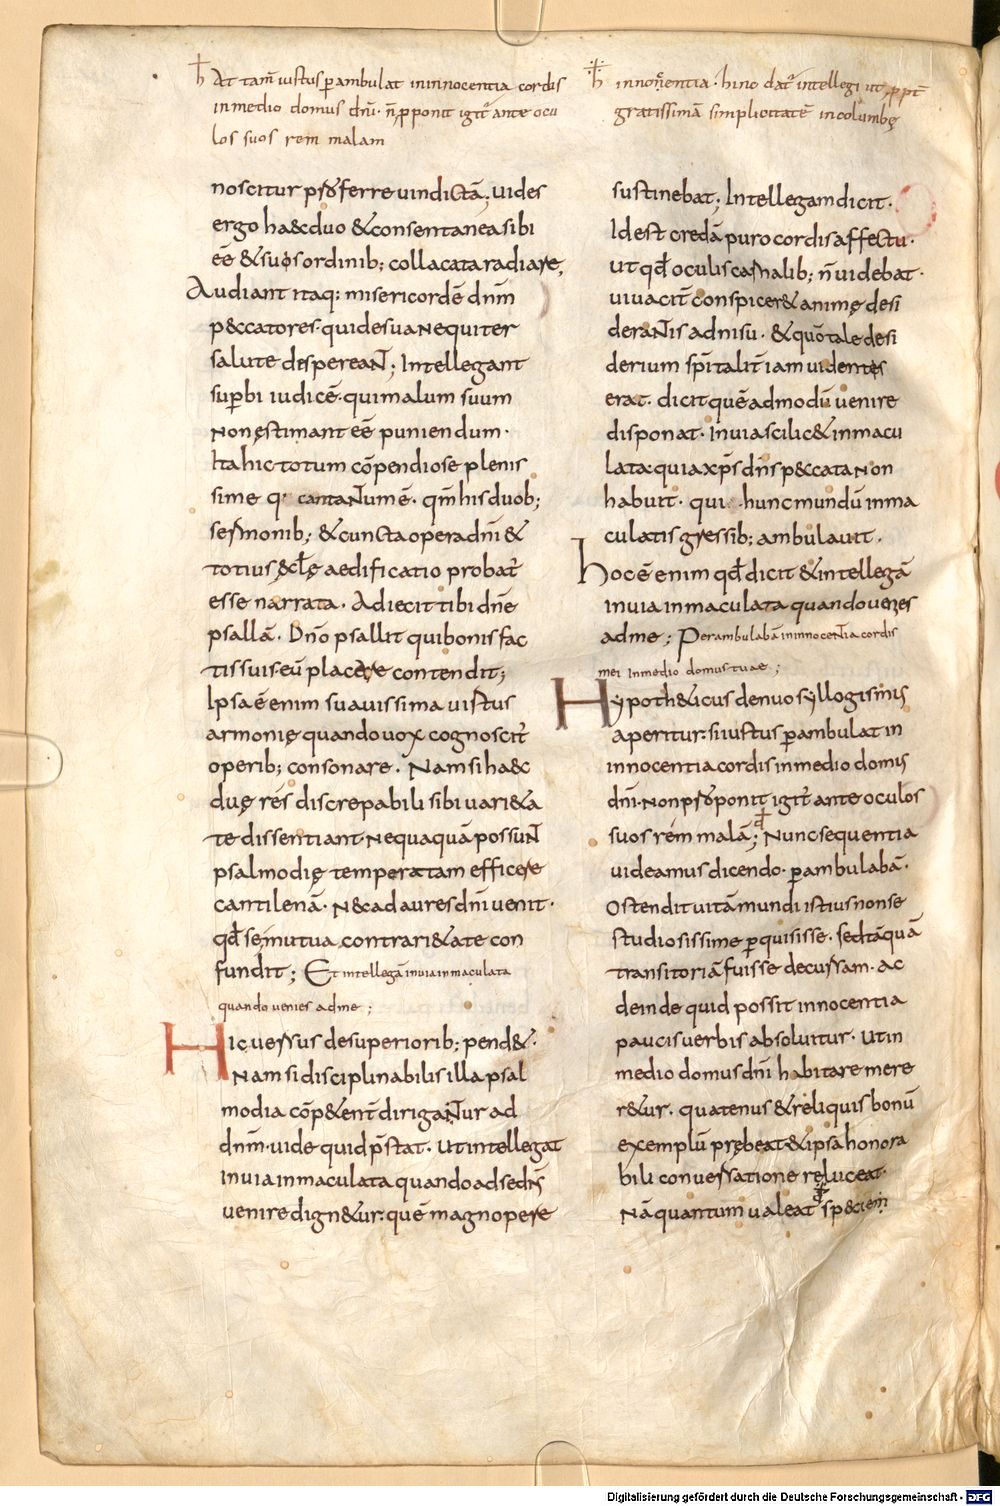 h At tam̄ iustus ꝑambulat in innocentia cordis
in medio domus dn̄i· n̄ ꝓponit igit᷑ ante ocu
los suos rem malam
noscitur p̱ferre uindictā; uides
ergo haec duo & consentanea sibi
eē & suis ordinib; collacata radiare,
Audiant itaq; misericordē dn̄m
p&ccatores· qui de sua nequiter
salute despereant; Intellegant
suꝑbi iudicē· qui malum suum
non ęstimant eē puniendum·
Ita hic totum cōpendiose plenis
sime cantatum ē· qm̄ his duob;
sermonib; & cuncta opera dn̄i &
totius ęccl̄ę aedificatio probat᷑
esse narrata. Adiecit tibi dn̄e
psallā. Dn̄o psallit qui bonis fac
tis suis eū placere contendit;
Ipsa ē enim suauissima uirtus
armonię quando uox cognoscit᷑
operib; consonare. Nam si haec
duę res discrepabili sibi uari&a
te dissentiant nequaquā possunt
psalmodię temperatam efficere
cantilenā· nec ad aures dn̄i uenit·
qd̄ se mutua contrari&ate con
fundit; Et intellegā in uia inmaculata
quando uenies ad me;
Hic uersus de superiorib; pend&·
Nam si disciplinabilis illa psal
modia cōp&ent̄ dirigantur ad
dn̄m· uide quid p̄stat· Ut intellegat
in uia inmaculata quando ad se dn̄s
uenire dign&ur· quē magnopere
h innoc̄entia· hinc dat᷑ intellegi ut ꝓpt̄
gratissimā simplicitatē in columbę
sustinebat; Intellegam dicit·
Id est credā puro cordis affectu·
Ut qd̄ oculis carnalib; n̄ uidebat·
uiuacit̄ conspicer& animę desi
derantis adnisu· & quō tale desi
derium sp̄italit̄ iam uidentes
erat· dicit quē admodū uenire
disponat· in uia scilic& inmacu
lata quia xp̄s dn̄s p&ccata non
habuit· qui hunc mundū inma
culatis gressib; ambulauit·
hoc ē enim qd̄ dicit & intellegā
in uia inmaculata quando uenies
ad me; Perambulabā in innocentia cordis
mei in medio domus tuae;
Hypoth&icus denuo syllogismus
aperitur· si iustus ꝑambulat in
innocentia cordis in medio domus
dn̄i· non p̱ponit igit᷑ ante oculos
suos rem malā; Nunc sequentia
uideamus dicendo· ꝑambulabā·
Ostendit uitā mundi istius non se
studiosissime ꝑquisisse· sed tāquā
transitoriā fuisse decursam· ac
deinde quid possit innocentia
paucis uerbis absoluitur· Ut in
medio domus dn̄i habitare mere
r&ur· quatenus & reliquis bonū
exemplū prębeat & ipsa honora
bili conuersatione reluceat·
Nā quantum ualeat sp&ciem̄
Digitalisierung gefördert durch die Deutsche Forschungsgemeinschaft - DFG